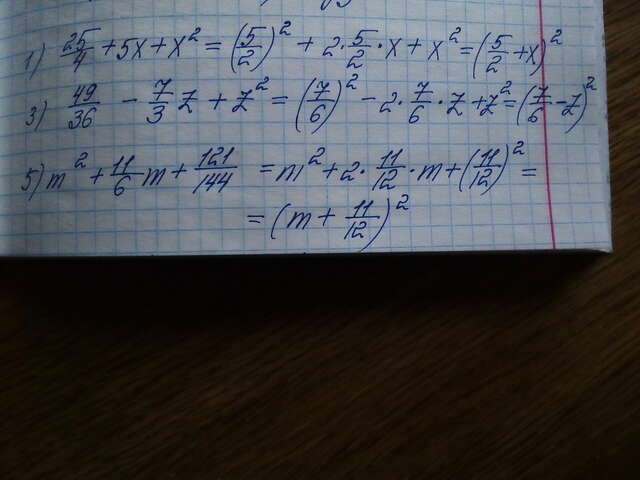 1) 25/4 + 5x + x² = (5/2)² + 2·5/2·x + x² = (5/2 + x)²
3) 49/36 - 7/3 z + z² = (7/6)² - 2·7/6·z + z² = (7/6 - z)²
5) m² + 11/6 m + 121/144 = m² + 2·11/12·m + (11/12)² =
= (m + 11/12)²